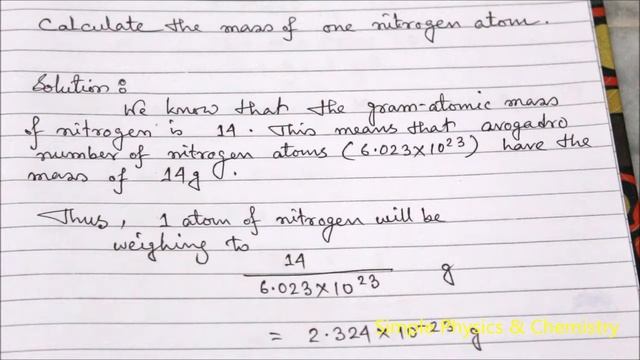 Calculate the mass of one nitrogen atom.
Solution :
We know that the gram-atomic mass
of nitrogen is 14. This means that avogadro
number of nitrogen atoms (6.023×10²³) have the
mass of 14g.
Thus, 1 atom of nitrogen will be
weighing to
14
6.023×10²³ g
= 2.324×10⁻²³ g
Simple Physics & Chemistry